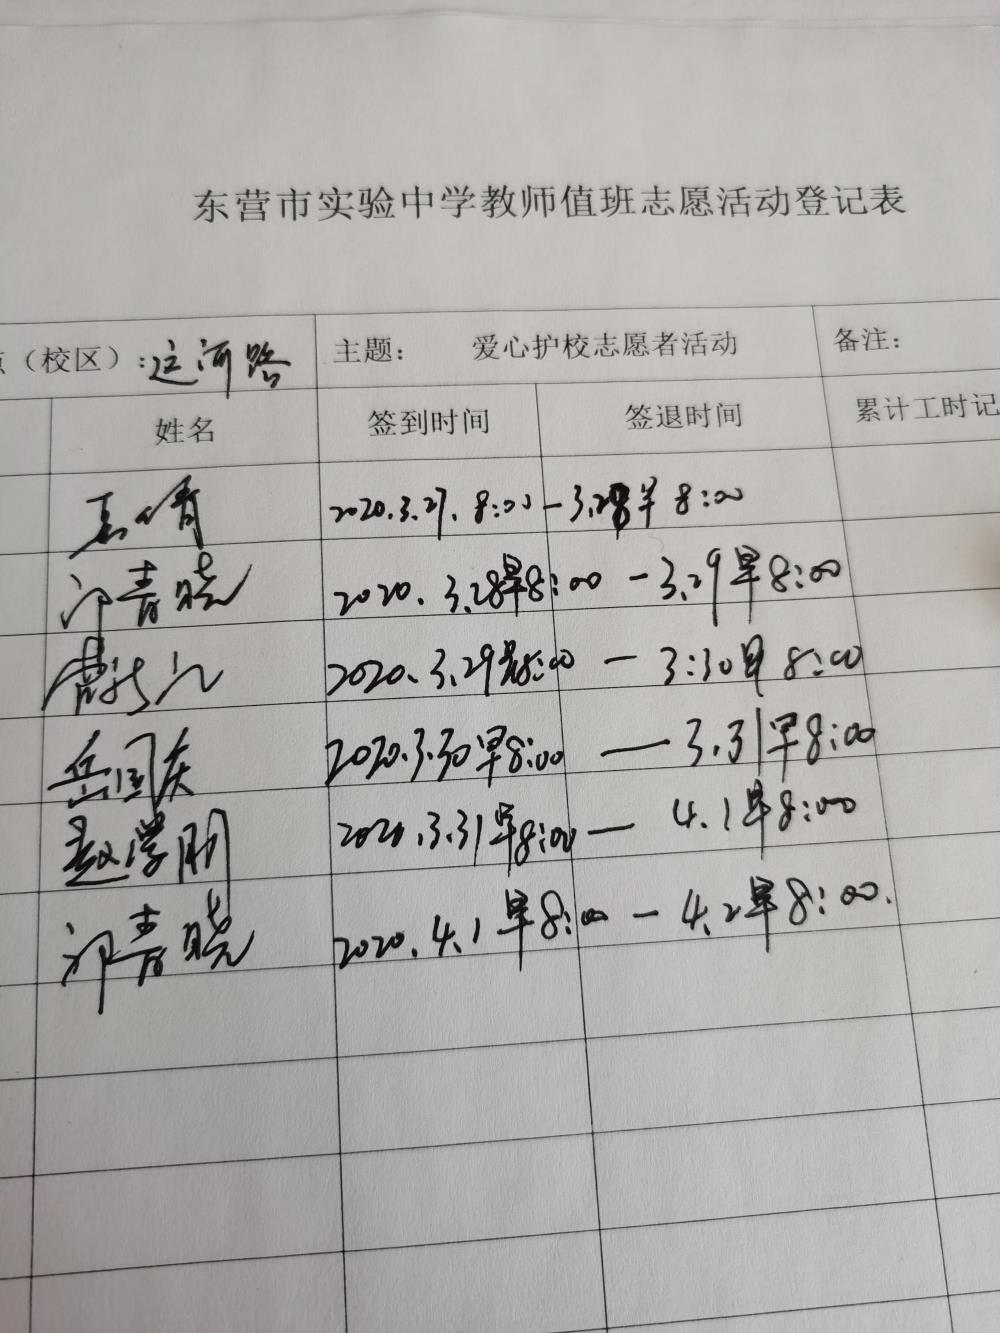 东营市实验中学教师值班志愿活动登记表
点（校区）:运河路 主题: 爱心护校志愿者活动 备注:
姓名 签到时间 签退时间 累计工时记
2020.3.27. 8:00 — 3.28早 8:00
邓青晓 2020.3.28早8:00 — 3.29早8:00
2020.3.29早8:00 — 3:30早 8:00
岳国庆 2020.3.30早8:00 — 3.31早8:00
赵学朋 2020.3.31早8:00 — 4.1早8:00
邓青晓 2020.4.1早8:00 — 4.2早8:00.